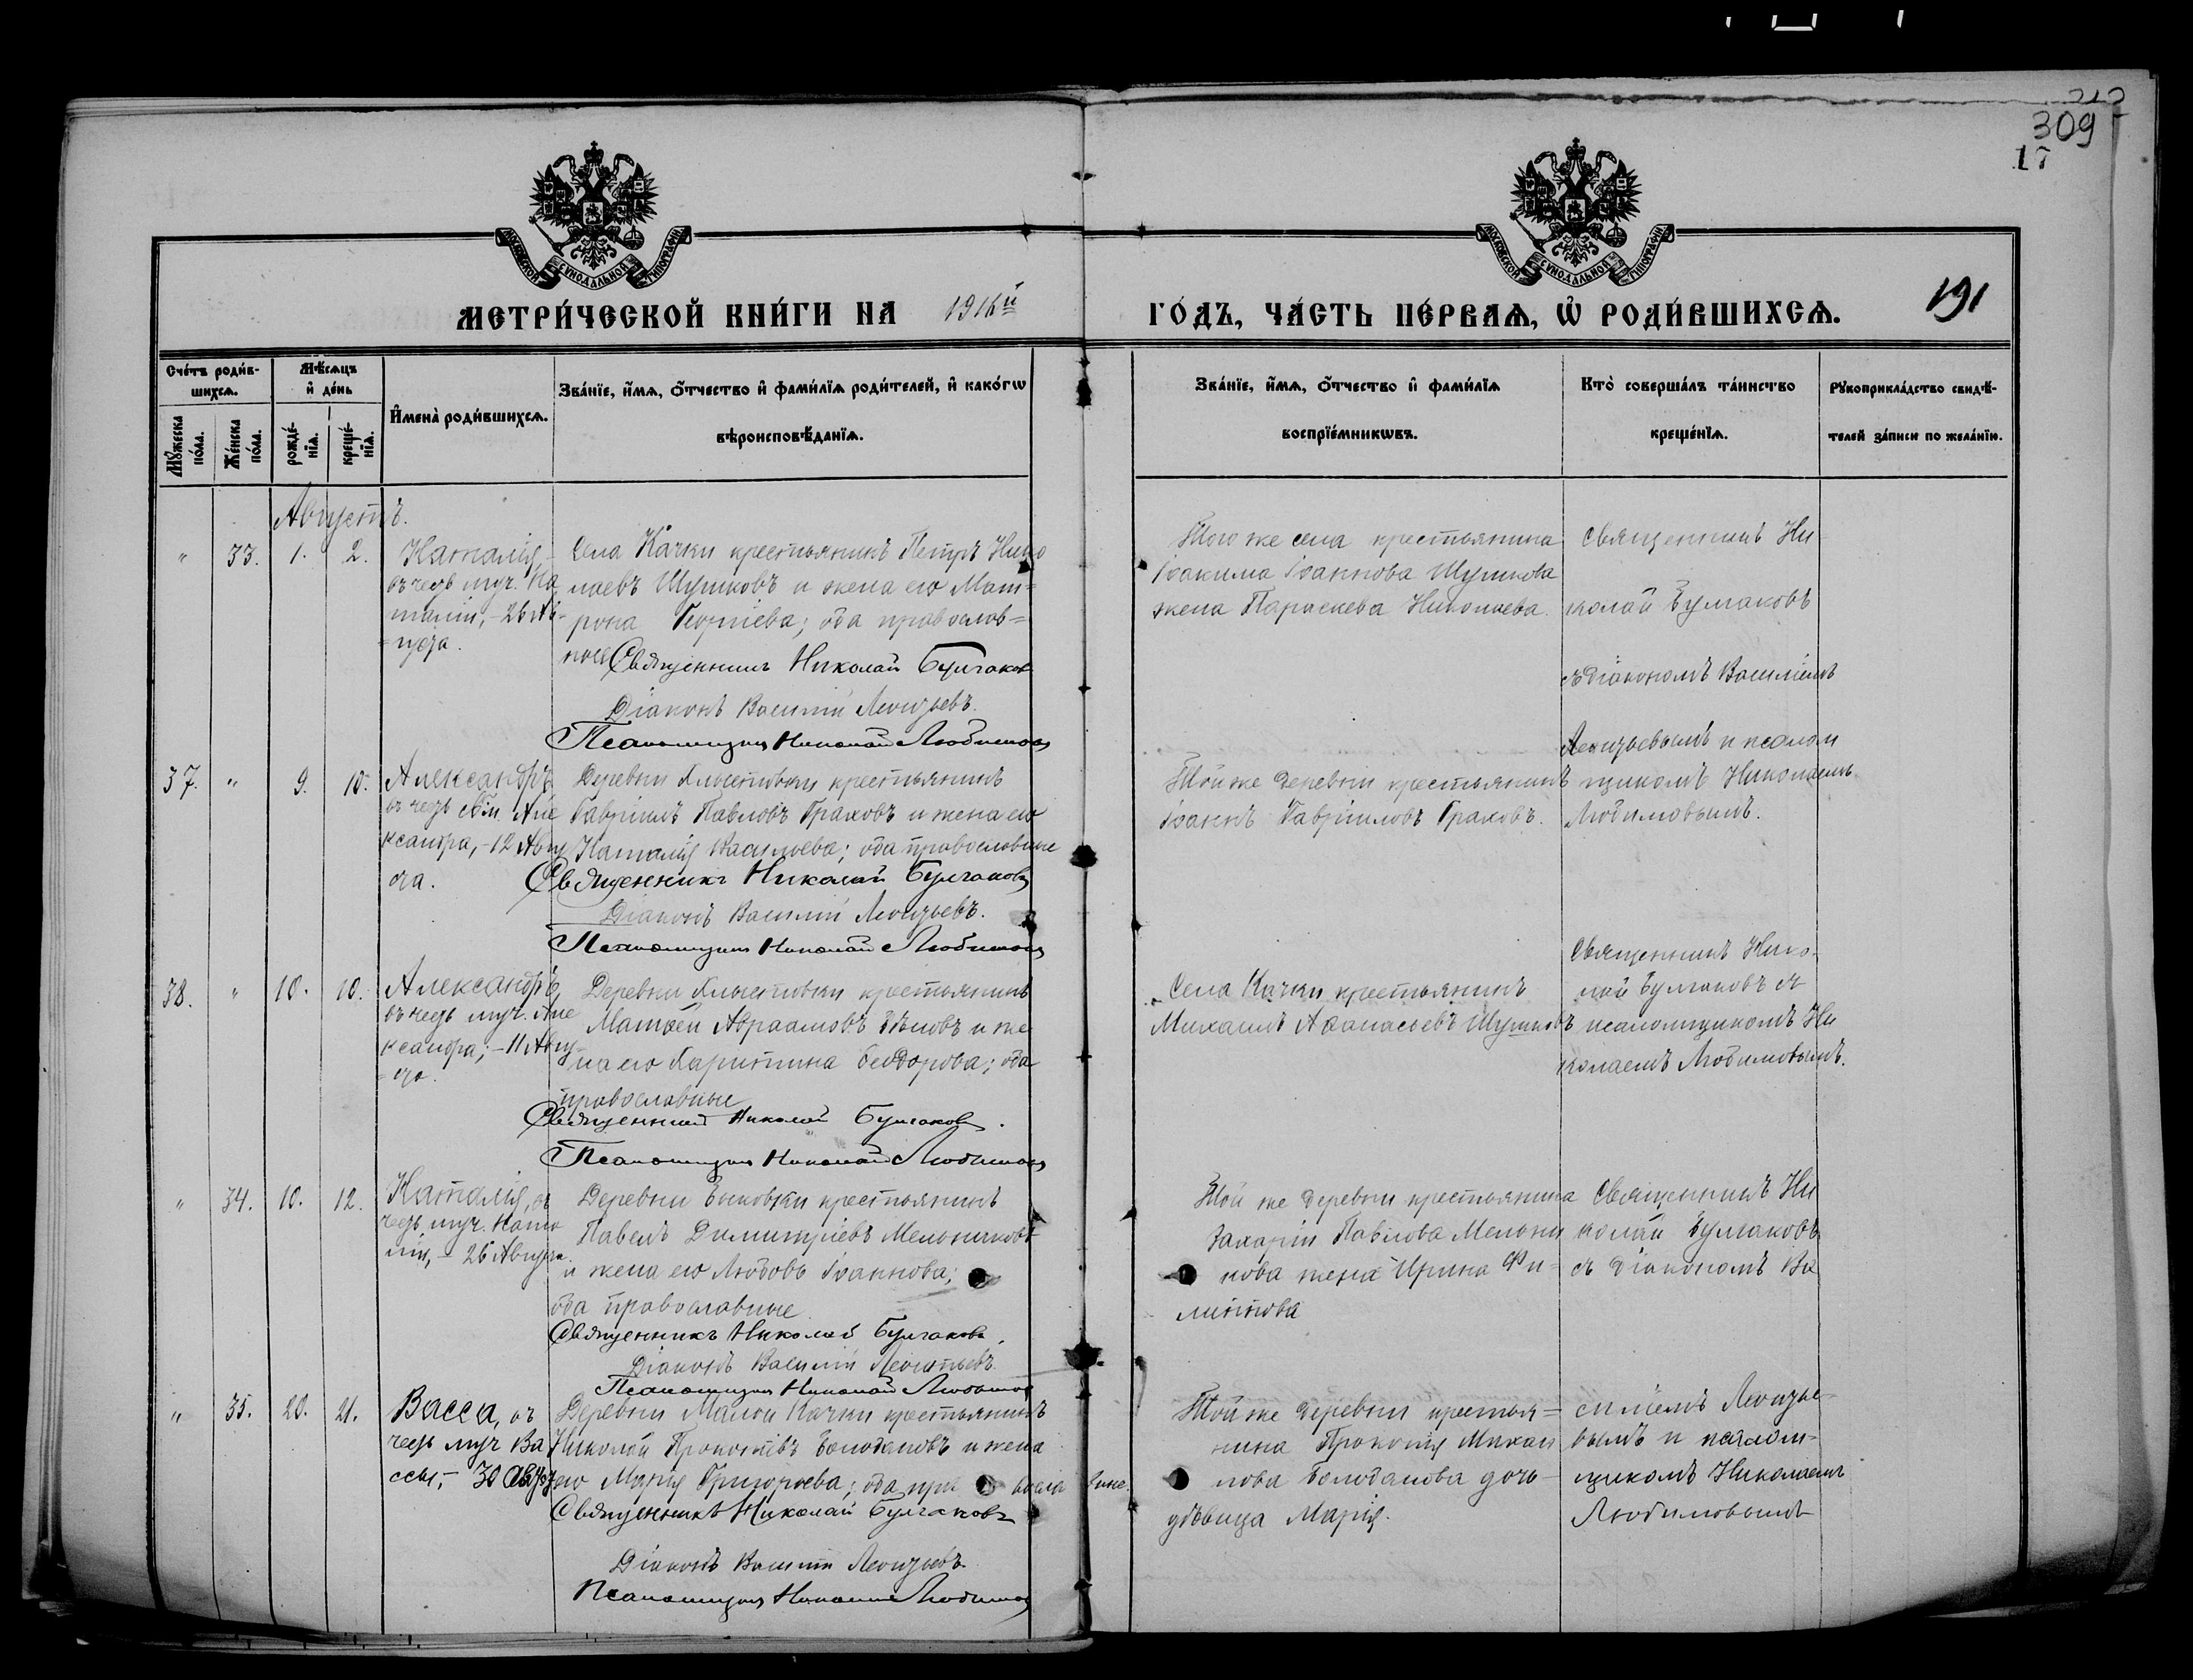 309
17
МОСКОВСКОЙ СѴНОДАЛЬНОЙ ТИПОГРАФІИ
МОСКОВСКОЙ СѴНОДАЛЬНОЙ ТИПОГРАФІИ
МЕТРИ́ЧЕСКОЙ КНИ́ГИ НА 1916й
ГО́ДЪ, ЧА́СТЬ ПЕ́РВАѦ, Ѡ РОДИ́ВШИХСѦ.
191
Сче́тъ роди́в-
шихсѧ.
Мѣ́сѧцъ
и҆ де́нь
Мꙋ́жеска по́ла.
Же́нска по́ла.
рожде́-
нїѧ.
креще́-
нїѧ.
И҆мена̀ роди́вшихсѧ.
Зва́нїе, и҆́мѧ, ѻ҆́тчество и҆ фами́лїѧ роди́телей, и҆ како́гѡ
вѣроисповѣ́данїѧ.
Зва́нїе, и҆́мѧ, ѻ҆́тчество и҆ фами́лїѧ
воспрїе́мникѡвъ.
Кто̀ соверша́лъ та́инство
креще́нїѧ.
Рꙋкоприкла́дство свидѣ́-
телей за́писи по жела́нїю.
Августъ.
" 33. 1. 2.
Наталія,
въ честь муч. На
таліи, - 26 Ав-
густа.
Села Качки крестьянинъ Петръ Нико
лаевъ Шушковъ и жена его Мат-
рона Георгіева; оба православ=
ные
Священникъ Николай Булгаковъ
Діаконъ Василій Леонтьевъ.
Псаломщикъ Николай Любимовъ
Того же села крестьянина
Іоакима Іоаннова Шушкова
жена Параскева Николаева.
Священникъ Ни
колай Булгаковъ
съ діакономъ Василіемъ
Леонтьевымъ и псалом
щикомъ Николаемъ
Любимовымъ.
37. " 9. 10.
Александръ
въ честь свщ. Але
ксандра, - 12 Авгу
ста.
Деревни Хлыстовки крестьянинъ
Гавріилъ Павловъ Граховъ и жена его
Наталія Васильева; оба православные
Священникъ Николай Булгаковъ
Діаконъ Василій Леонтьевъ.
Псаломщикъ Николай Любимовъ
Той же деревни крестьянинъ
Іоаннъ Гавріиловъ Граховъ.
38. " 10. 10.
Александръ,
въ честь муч. Але
ксандра; - 11 Авгу-
ста.
Деревни Хлыстовки крестьянинъ
Матѳей Авраамовъ Бѣловъ и же
на его Харитина Ѳеодорова; оба
православные
Священникъ Николай Булгаковъ.
Псаломщикъ Николай Любимовъ
Села Качки крестьянинъ
Михаилъ Аѳанасьевъ Шушковъ
Священникъ Нико-
лай Булгаковъ съ
псаломщикомъ Ни
колаемъ Любимовымъ.
" 34. 10. 12.
Наталія, въ
честь муч. Ната
ліи, - 26 Августа.
Деревни Быковки крестьянинъ
Павелъ Димитріевъ Мельниковъ
и жена его Любовь Іоаннова;
оба православные
Священникъ Николай Булгаковъ.
Діаконъ Василій Леонтьевъ.
Псаломщикъ Николай Любимовъ
Той же деревни крестьянина
Захаріи Павлова Мельни
кова жена Ирина Фи-
липпова
Священникъ Ни
колай Булгаковъ
съ діакономъ Ва
силіемъ Леонтье-
вымъ и псалом-
щикомъ Николаемъ
Любимовымъ
" 35. 20. 21.
Васса, въ
честь муч Ва
ссы, - 30 Августа
Деревни Малой Качки крестьянинъ
Николай Прокопіевъ Болобановъ и жена
его Марія Григорьева; оба православные.
Священникъ Николай Булгаковъ
Діаконъ Василій Леонтьевъ.
Псаломщикъ Николай Любимовъ
Той же деревни крестья=
нина Прокопія Михаи
лова Болобанова дочь
дѣвица Марія.